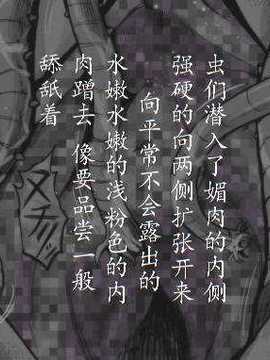 虫们潜入了媚肉的内侧
强硬的向两侧扩张开来
向平常不会露出的
水嫩水嫩的浅粉色的内
肉蹭去 像要品尝一般
舔舐着